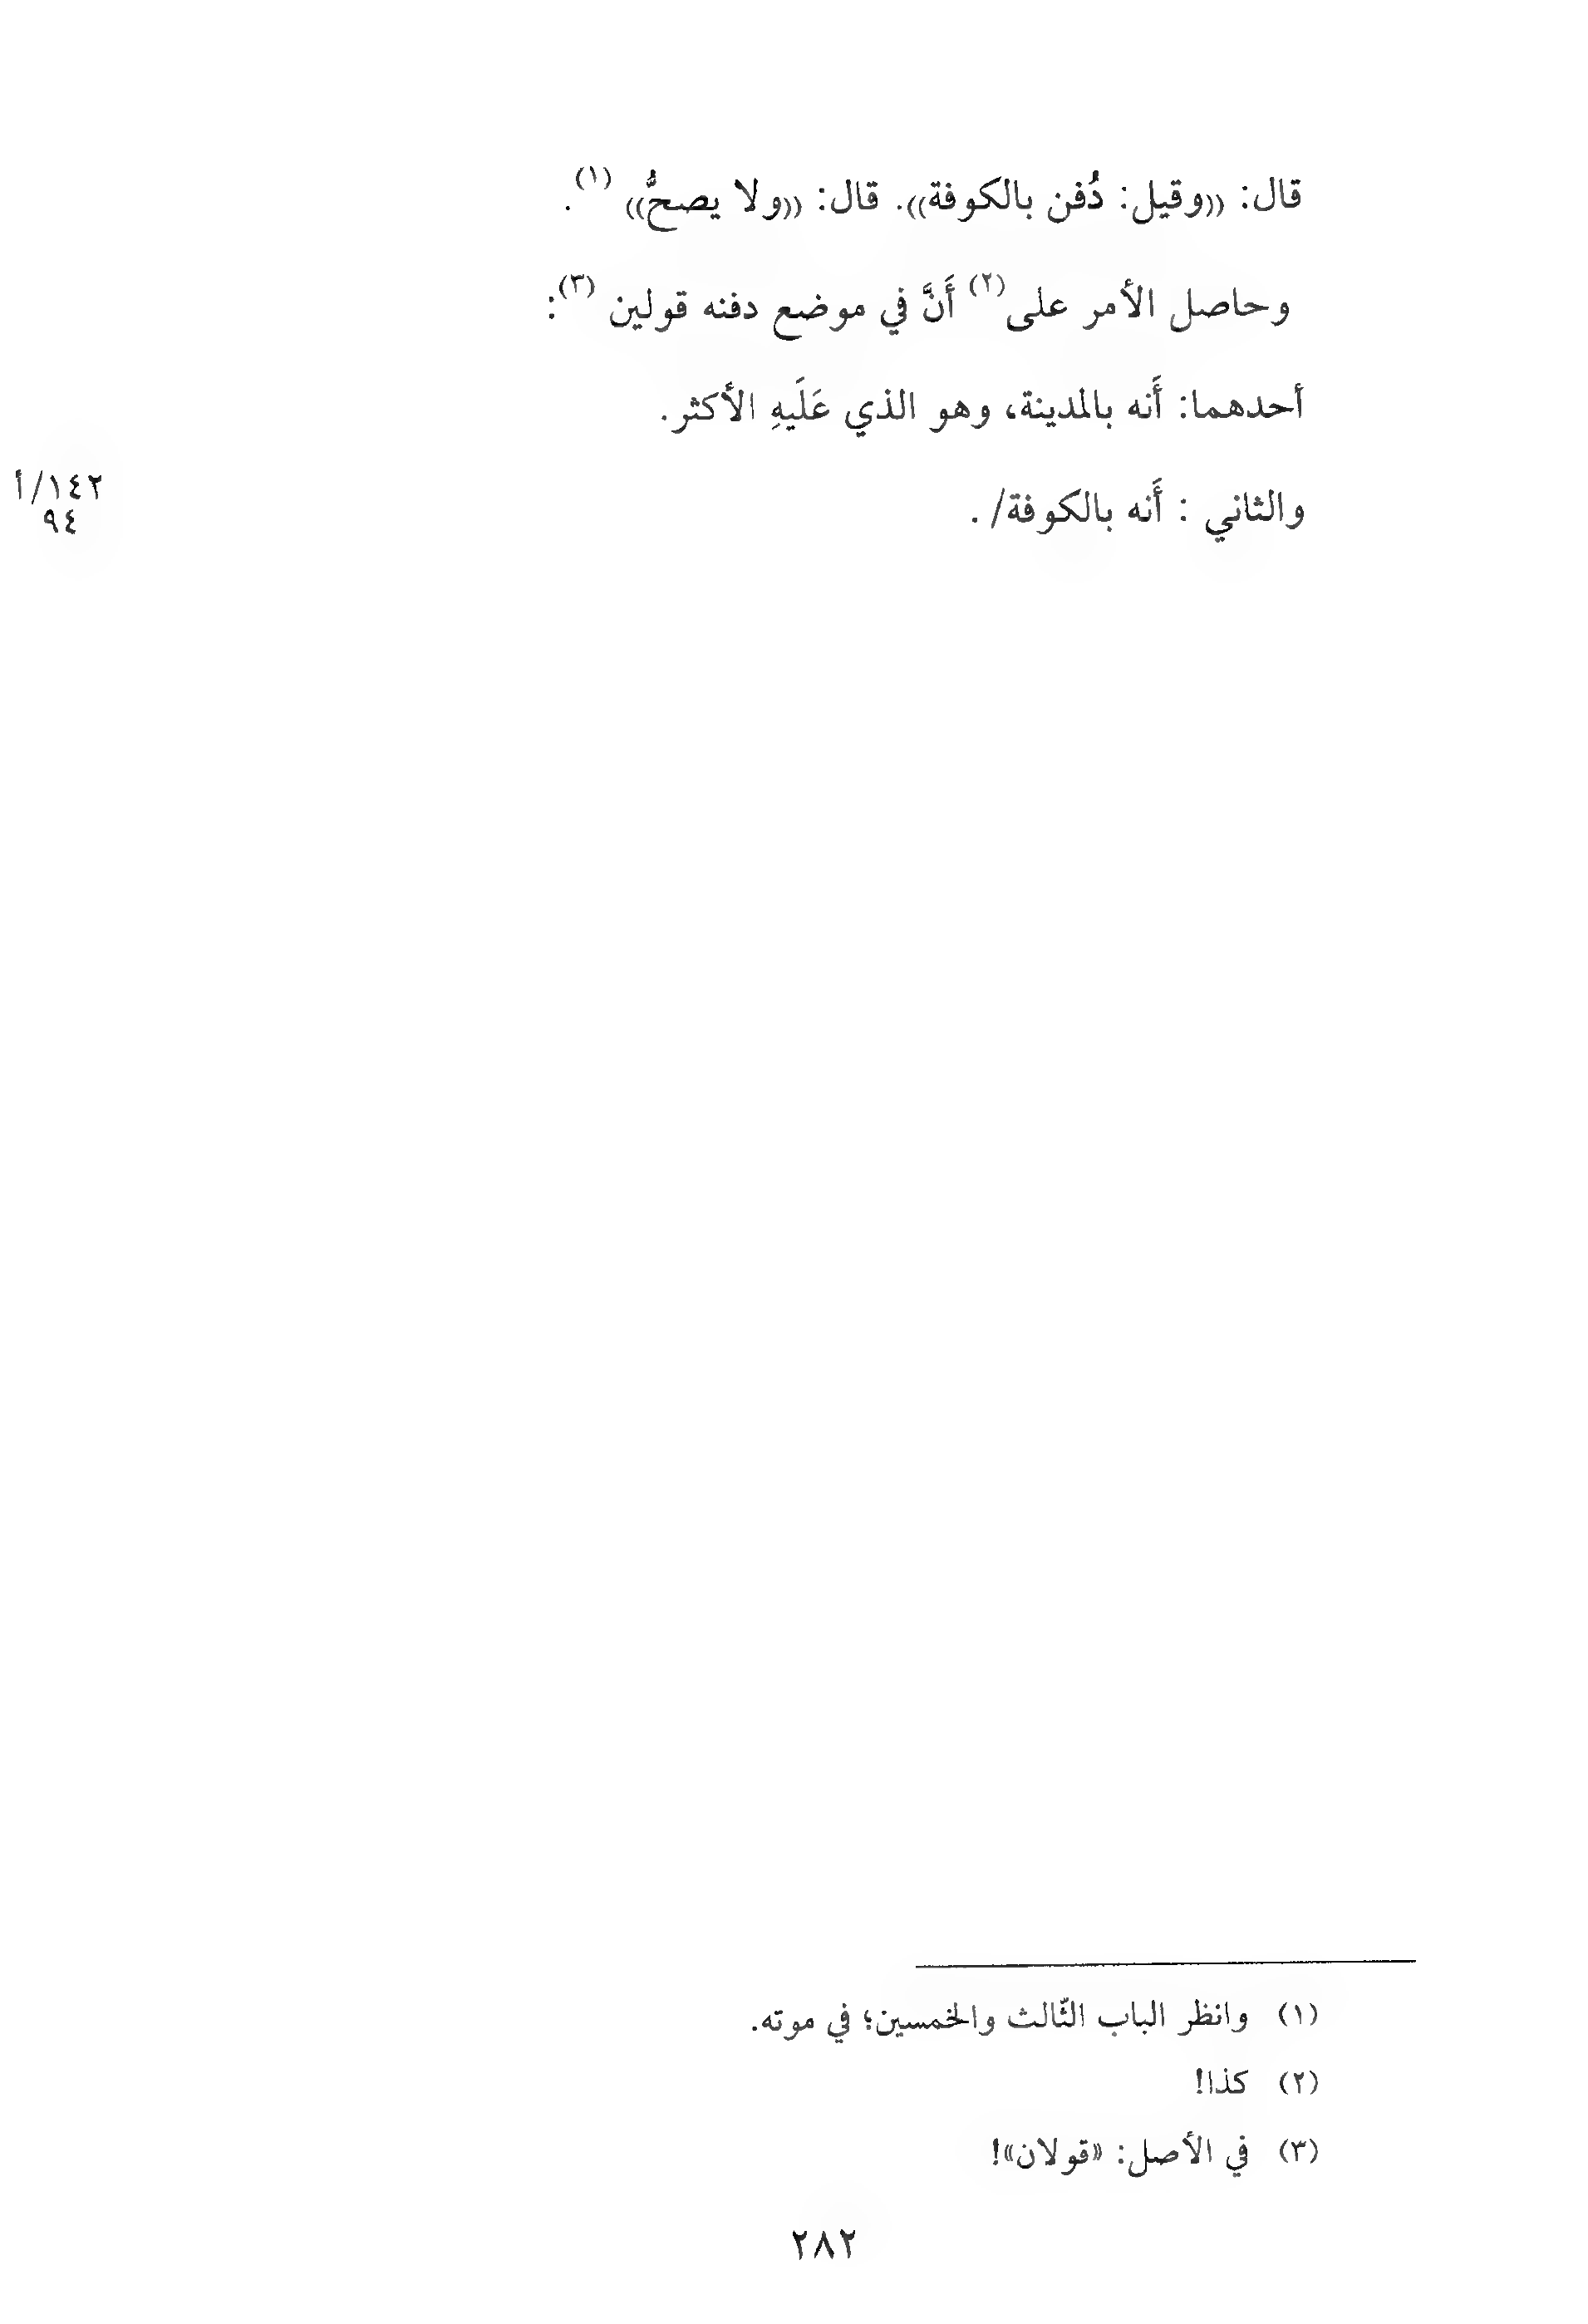 قال: ((وقيل: دُفن بالكوفة)). قال: ((ولا يصحُّ)) (١).
وحاصل الأمر على (٢) أَنَّ في موضع دفنه قولين (٣):
أحدهما: أَنه بالمدينة، وهو الذي عَلَيهِ الأكثر.
والثاني : أَنه بالكوفة/ .
١٤٢/أ
٩٤
(١) وانظر الباب الثّالث والخمسين؛ في موته.
(٢) كذا!
(٣) في الأصل: «قولان»!
٢٨٢